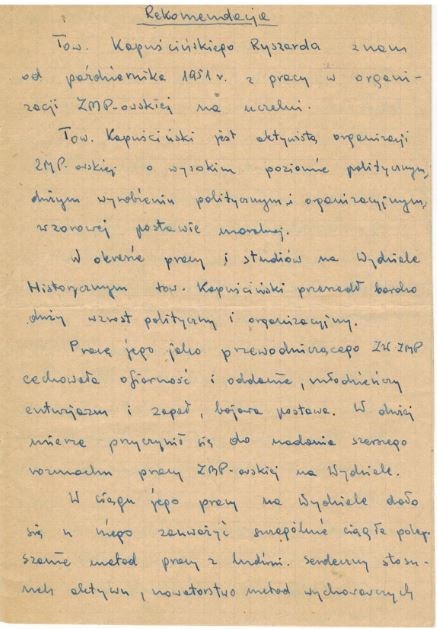 Rekomendacja
Tow. Kapuścińskiego Ryszarda znam
od października 1951 r. z pracy w organi-
zacji ZMP-owskiej na uczelni.
Tow. Kapuściński jest aktywistą organizacji
ZMP-owskiej o wysokim poziomie politycznym,
dużym wyrobieniu politycznym i organizacyjnym,
wzorowej postawie moralnej.
W okresie pracy i studiów na Wydziale
Historycznym tow. Kapuściński przeszedł bardzo
duży wzrost polityczny i organizacyjny.
Pracę jego jako przewodniczącego ZW ZMP
cechowała ofiarność i oddanie, młodzieńczy
entuzjazm i zapał, bojowa postawa. W dużej
mierze przyczynił się do nadania szerszego
rozmachu pracy ZMP-owskiej na Wydziale.
W ciągu jego pracy na Wydziale dało
się u niego zauważyć szczególnie ciągłe polep-
szanie metod pracy z ludźmi. Serdeczny stosu-
nek aktywu, nowatorstwo metod wychowawczych